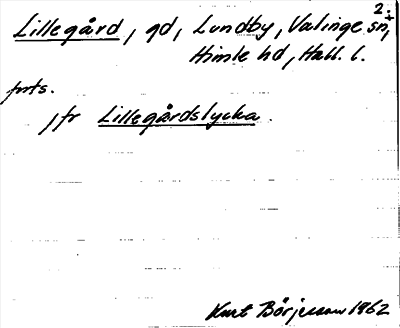 2.
Lillegård, gd, Lundby, Valinge sn,
Himle hd, Hall. l.
forts.
, fr Lillegårdslycka.
Kurt Börjesson 1962